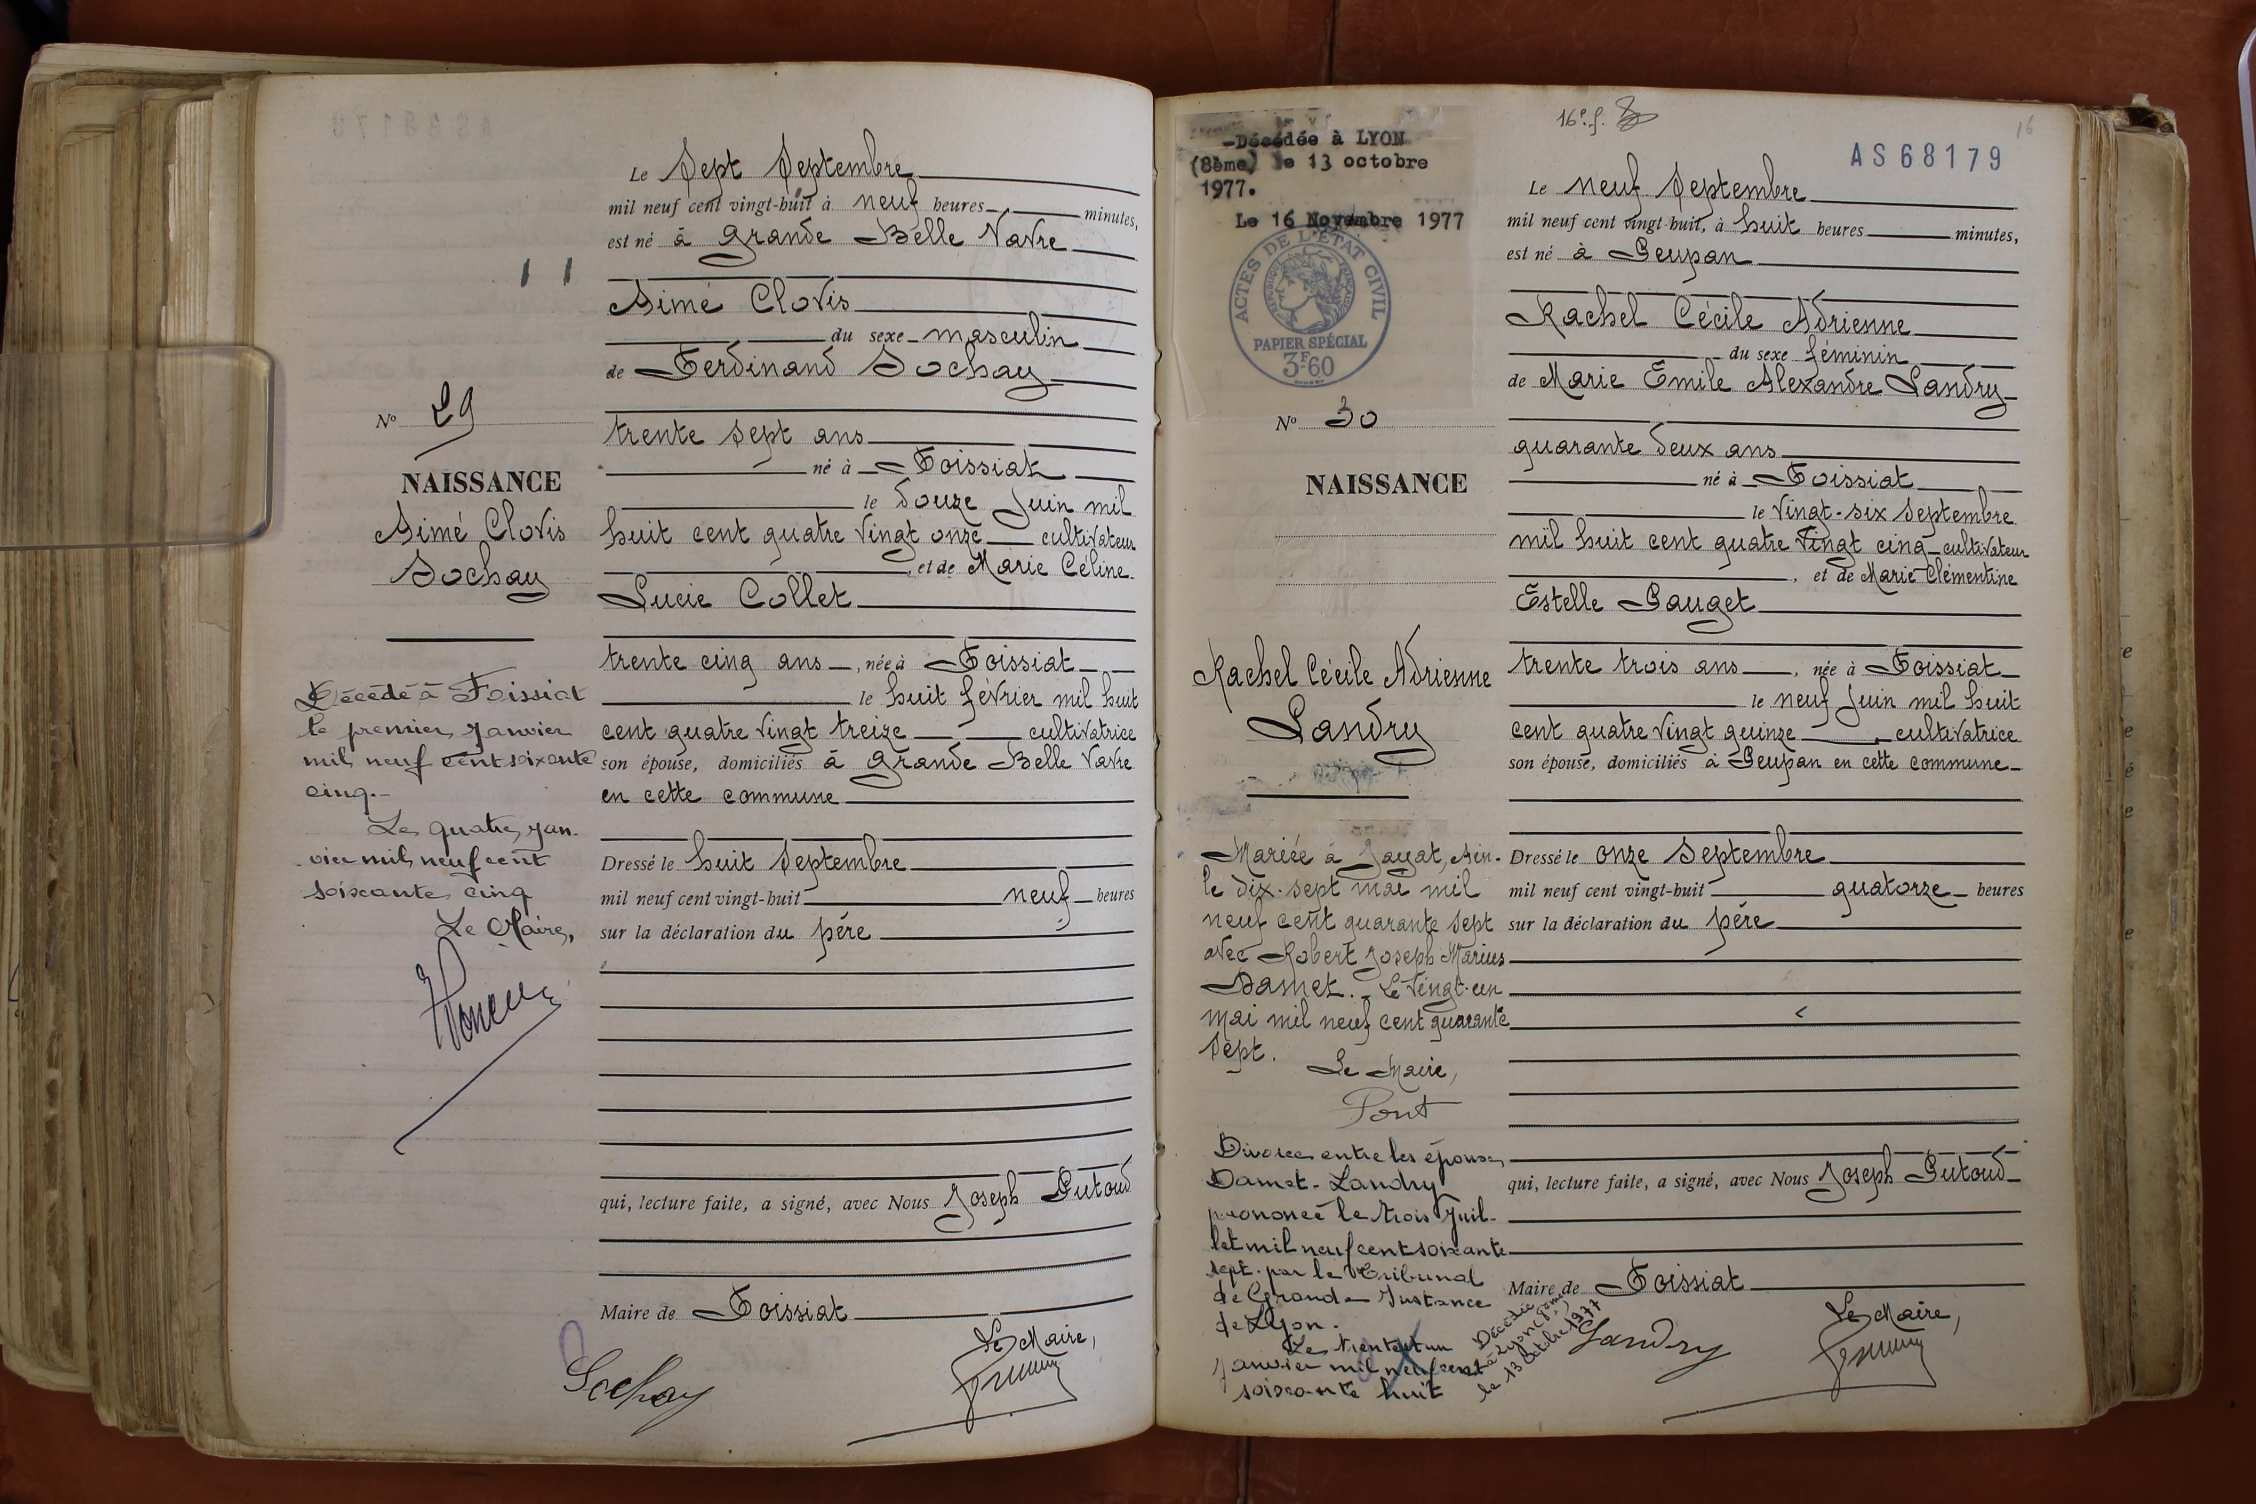 Le Sept Septembre
mil neuf cent vingt-huit à neuf heures minutes,
est né à Grande Belle Vavre
Aimé Clovis
du sexe masculin
de Ferdinand Sochay
trente sept ans
né à Foissiat
le douze Juin mil
huit cent quatre vingt onze cultivateur
, et de Marie Céline
Lucie Collet
trente cinq ans, née à Foissiat
le huit février mil huit
cent quatre vingt treize cultivatrice
son épouse, domiciliés à Grande Belle Vavre
en cette commune
Dressé le huit Septembre
mil neuf cent vingt-huit neuf heures
sur la déclaration du père
qui, lecture faite, a signé, avec Nous Joseph Putoud
Maire de Foissiat
Le Maire,
Sochay
No 29
NAISSANCE
Aimé Clovis
Sochay
Décédé à Foissiat
le premier Janvier
mil neuf cent soixante
cinq.-
Le quatre Jan-
vier mil neuf cent
soixante cinq
Le Maire,
16e. f.
16
AS68179
-Décédée à LYON
(8ème) le 13 octobre
1977.
Le 16 Novembre 1977
ACTES DE L'ÉTAT CIVIL
RÉPUBLIQUE FRANÇAISE
PAPIER SPÉCIAL
3F60
No 30
NAISSANCE
Rachel Cécile Adrienne
Landry
Mariée à Jayat, Ain.
le dix-sept mai mil
neuf cent quarante sept
avec Robert Joseph Marius
Damet. Le vingt-un
mai mil neuf cent quarante
sept.
Le Maire,
Pont
Divorce entre les époux
Damet-Landry
prononcé le trois Juil-
let mil neuf cent soixante
sept par le Tribunal
de Grande Instance
de Lyon.
Le trente et un
Janvier mil neuf cent
soixante huit
Décédée
à Lyon (8ème)
le 13 Octobre 1977
Le neuf Septembre
mil neuf cent vingt-huit, à huit heures minutes,
est né à Peupan
Rachel Cécile Adrienne
du sexe féminin
de Marie Emile Alexandre Landry
quarante deux ans
né à Foissiat
le vingt-six Septembre
mil huit cent quatre vingt cinq cultivateur
, et de Marie Clémentine
Estelle Pauget
trente trois ans, née à Foissiat
le neuf Juin mil huit
cent quatre vingt quinze, cultivatrice
son épouse, domiciliés à Peupan en cette commune
Dressé le onze Septembre
mil neuf cent vingt-huit quatorze heures
sur la déclaration du père
qui, lecture faite, a signé, avec Nous Joseph Putoud
Maire de Foissiat
Le Maire,
Landry